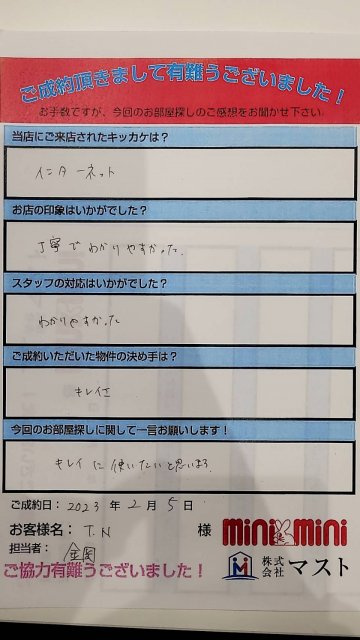 ご成約頂きまして有難うございました！
お手数ですが、今回のお部屋探しのご感想をお聞かせ下さい。
当店にご来店されたキッカケは？
インターネット
お店の印象はいかがでした？
丁寧でわかりやすかった。
スタッフの対応はいかがでした？
わかりやすかった
ご成約いただいた物件の決め手は？
キレイさ
今回のお部屋探しに関して一言お願いします！
キレイに使いたいと思います
ご成約日：2023年2月5日
お客様名：T.N 様
mini mini
担当者：
株式会社マスト
ご協力有難うございました！